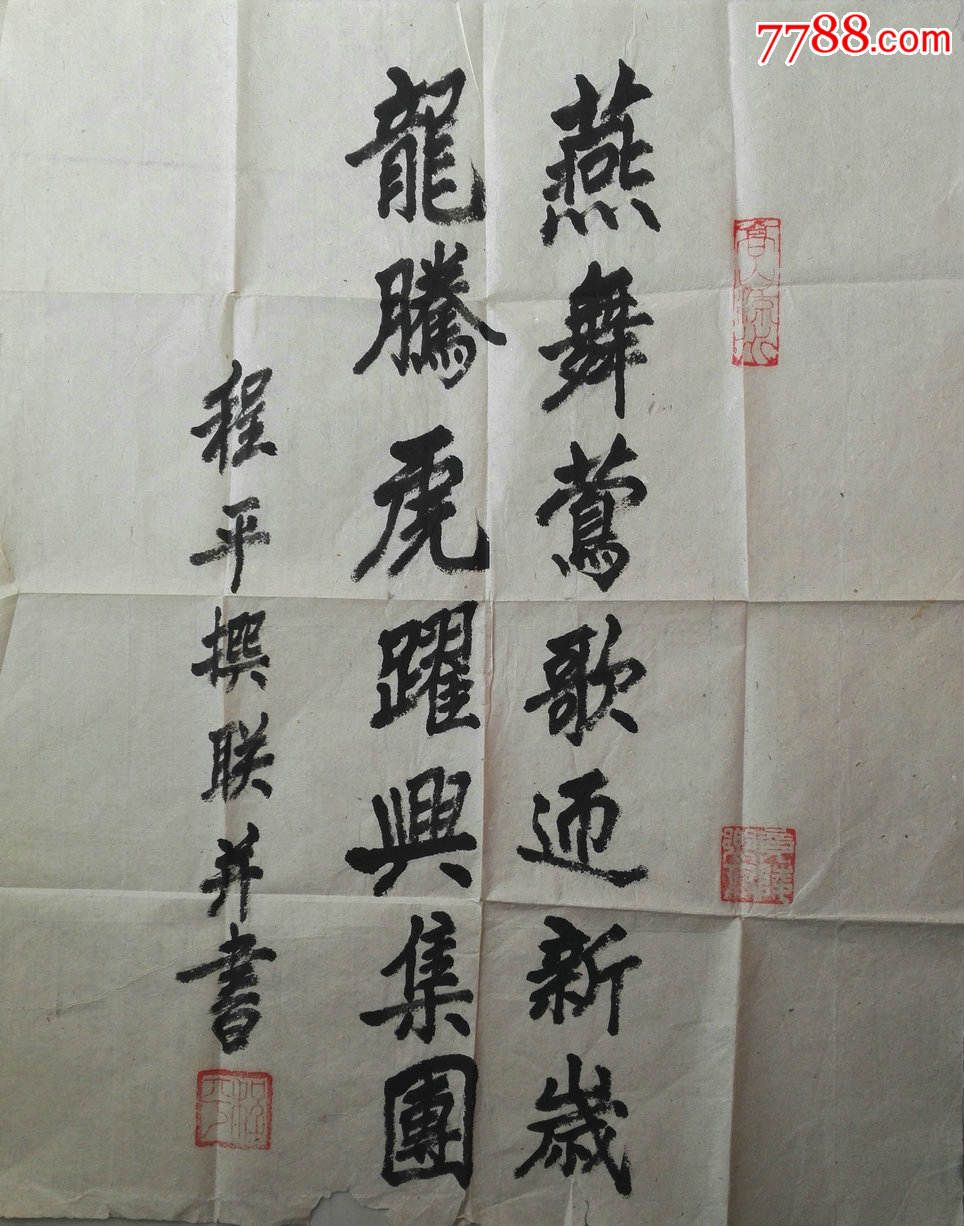 7788.com
燕舞鶯歌迊新歲
龍騰虎躍興集團
程平撰联并書